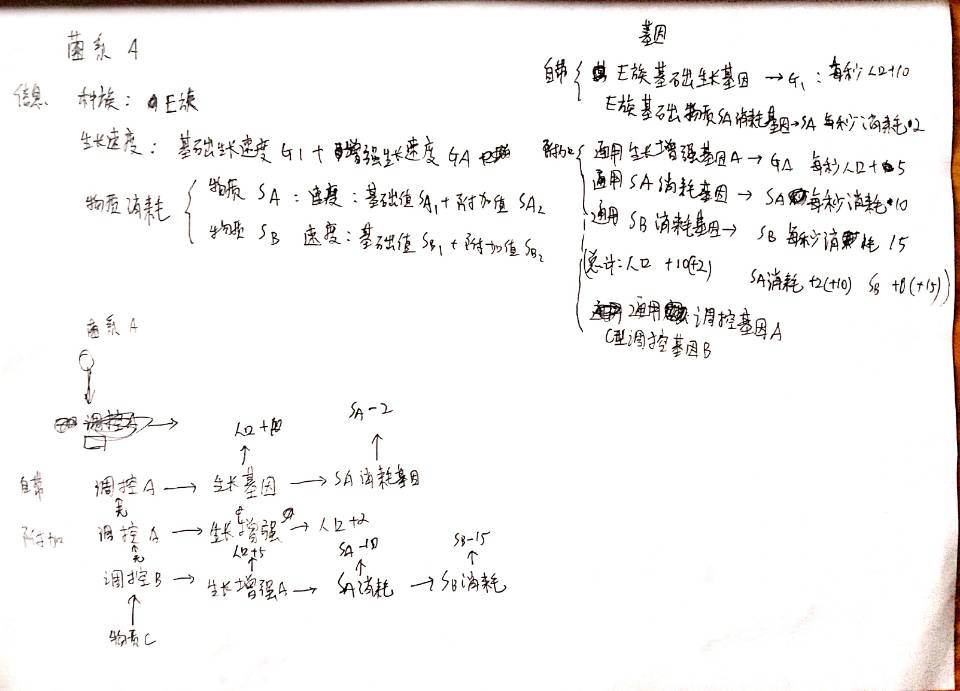 菌系 A
信息 种族: E族
生长速度: 基础生长速度 G1 + 增强生长速度 GA
物质消耗 { 物质 SA: 速度: 基础值 SA1 + 附加值 SA2
物质 SB 速度: 基础值 SB1 + 附加值 SB2
基因
自带 { E族基础生长基因 → G1: 每秒人口+10
E族基础物质SA消耗基因→SA 每秒消耗 2
附加 { 通用生长增强基因A → GA 每秒人口+5
通用 SA 消耗基因 → SA 每秒消耗 10
通用 SB 消耗基因→ SB 每秒消耗 15
(总计:人口 +10(+2) SA消耗 +2(+10) SB +0(+15))
通用 调控基因A
C型调控基因B
菌系 A
调控A →
自带 调控 A → 生长基因 → SA 消耗基因
人口+10
SA-2
无
附加 调控 A → 生长增强 → 人口+2
无
调控 B → 生长增强A → SA消耗 → SB消耗
人口+5
SA-10
SB-15
物质C